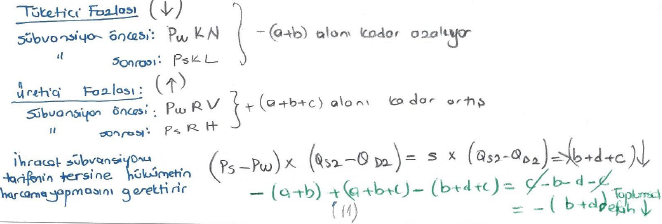 Tüketici Fazlası (↓)
Sübvansiyon öncesi: Pw K N } -(a+b) alanı kadar azalıyor
" sonrası: Ps K L
Üretici Fazlası: (↑)
Sübvansiyon öncesi: Pw R V } +(a+b+c) alanı kadar artış
" sonrası: Ps R H
İhracat sübvansiyonu
tarifenin tersine hükümetin
harcama yapmasını gerektirir
(Ps-Pw) x (Qs2-QD2) = s x (Qs2-QD2) = (b+d+c)↓
-(a+b) + (a+b+c) - (b+d+c) = c-b-d-c
= -(b+d) Toplumsal refah ↓
(11)